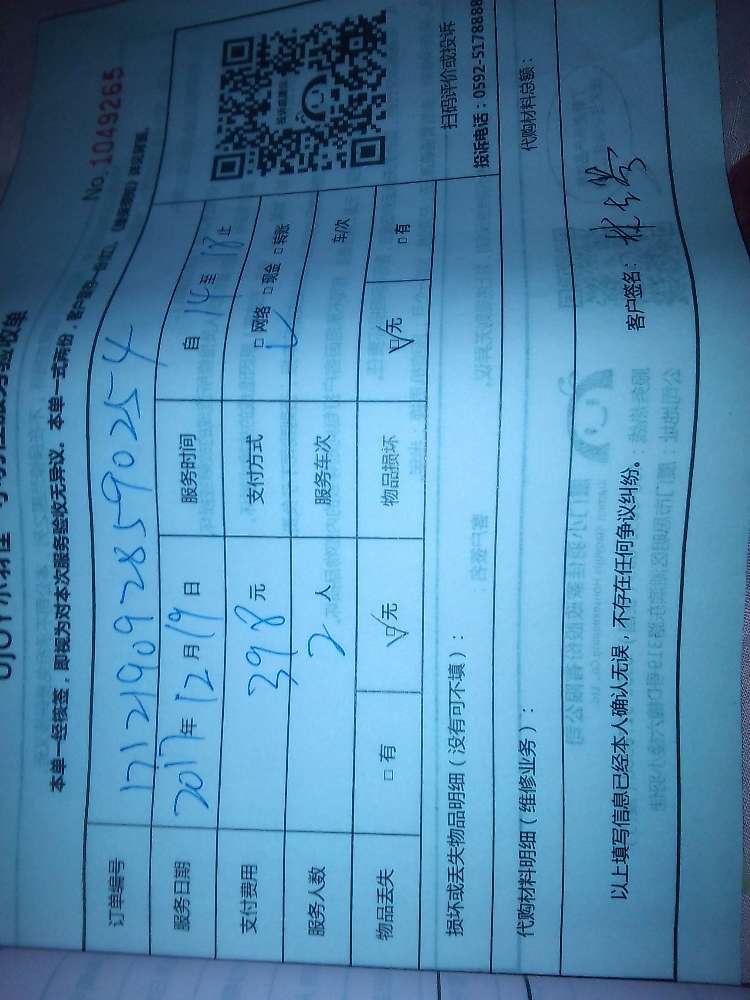 No. 1049265
本单一经核签，即视为对本次服务验收无异议。本单一式两份，客户留存一份
订单编号 171219092859O254
服务日期 2017年12月19日 服务时间 自14至18止
支付费用 398元 支付方式 □网络 □现金 □转账
服务人数 2人 服务车次 车/次
物品丢失 □有 ☑无 物品损坏 ☑无 □有
扫码评价或投诉
投诉电话：0592-5178888
损坏或丢失物品明细（没有可不填）：
代购材料明细（维修业务）： 代购材料总额：
以上填写信息已经本人确认无误，不存在任何争议纠纷。 客户签名：